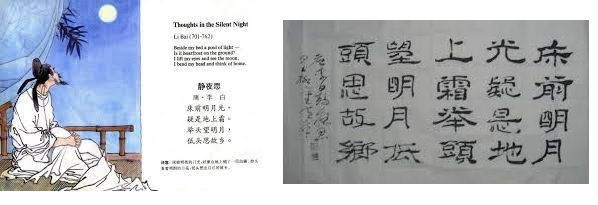 Thoughts in the Silent Night
Li Bai (701-762)
Beside my bed a pool of light —
Is it hoarfrost on the ground?
I lift my eyes and see the moon,
I bend my head and think of home.
静夜思
唐·李 白
床前明月光，
疑是地上霜。
举头望明月，
低头思故乡。
床前明月
光疑是地
上霜举頭
望明月低
頭思故鄉